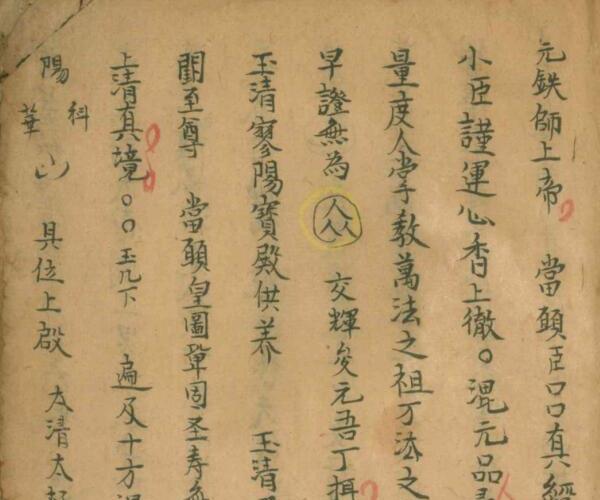 元鉄師上帝 當願臣口口真經
小臣謹運心香上徹〇混元品
量度人掌教萬法之祖万法之
早證無為 交輝夋元吾丁
玉清寥陽寶殿供养 玉清
闈至尊 當願皇圖鞏固圣寿無
上清真境〇〇玉几下 遍及十方
陽科華山 具位上啟 太清太